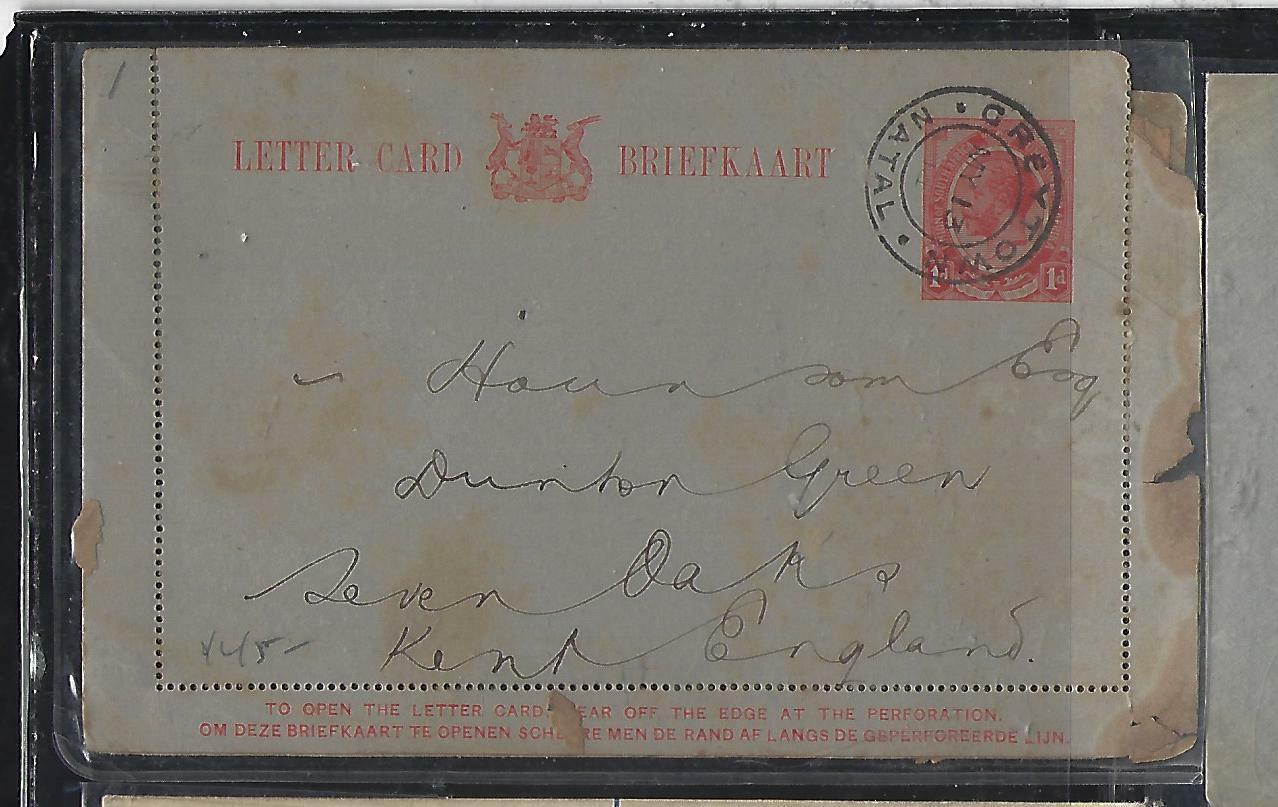 1
LETTER CARD BRIEFKAART
GREYTOWN · NATAL ·
MY 13
1d 1d
Hounsom Esq
Dunton Green
Seven Oaks
Kent England.
TO OPEN THE LETTER CARD, EAR OFF THE EDGE AT THE PERFORATION.
OM DEZE BRIEFKAART TE OPENEN SCHE RE MEN DE RAND AF LANGS DE GEPERFOREERDE LIJN.